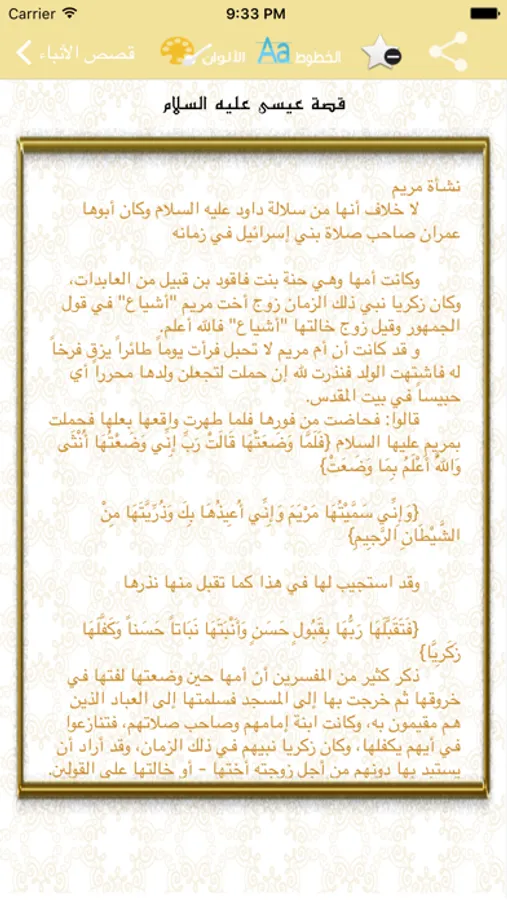 Carrier 9:33 PM
قصص الأنبياء الألوان Aa الخطوط
قصة عيسى عليه السلام
نشأة مريم
لا خلاف أنها من سلالة داود عليه السلام وكان أبوها
عمران صاحب صلاة بني إسرائيل في زمانه
وكانت أمها وهي حنة بنت فاقود بن قبيل من العابدات،
وكان زكريا نبي ذلك الزمان زوج أخت مريم "أشياع" في قول
الجمهور وقيل زوج خالتها "أشياع" فالله أعلم.
و قد كانت أن أم مريم لا تحبل فرأت يوماً طائراً يزق فرخاً
له فاشتهت الولد فنذرت لله إن حملت لتجعلن ولدها محرراً أي
حبيساً في بيت المقدس.
قالوا: فحاضت من فورها فلما طهرت واقعها بعلها فحملت
بمريم عليها السلام {فَلَمَّا وَضَعَتْهَا قَالَتْ رَبِّ إِنِّي وَضَعْتُهَا أُنْثَى
وَاللَّهُ أَعْلَمُ بِمَا وَضَعَتْ}
{وَإِنِّي سَمَّيْتُهَا مَرْيَمَ وَإِنِّي أُعِيذُهَا بِكَ وَذُرِّيَّتَهَا مِنْ
الشَّيْطَانِ الرَّجِيمِ}
وقد استجيب لها في هذا كما تقبل منها نذرها
{فَتَقَبَّلَهَا رَبُّهَا بِقَبُولٍ حَسَنٍ وَأَنْبَتَهَا نَبَاتاً حَسَناً وَكَفَّلَهَا
زَكَرِيَّا}
ذكر كثير من المفسرين أن أمها حين وضعتها لفتها في
خروقها ثم خرجت بها إلى المسجد فسلمتها إلى العباد الذين
هم مقيمون به، وكانت ابنة إمامهم وصاحب صلاتهم، فتنازعوا
في أيهم يكفلها، وكان زكريا نبيهم في ذلك الزمان، وقد أراد أن
يستبد بها دونهم من أجل زوجته أختها - أو خالتها على القولين.